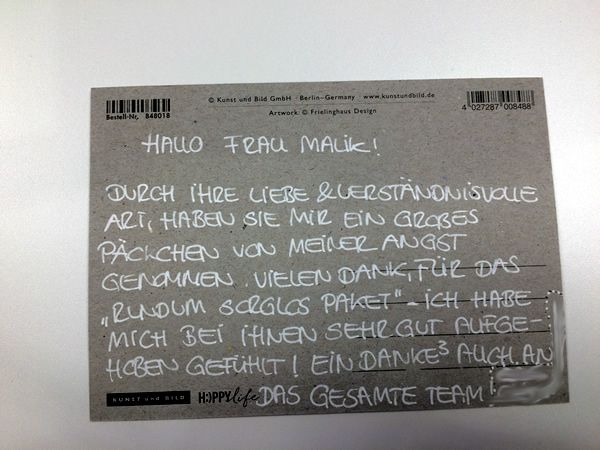 © Kunst und Bild GmbH · Berlin-Germany · www.kunstundbild.de
Bestell-Nr. 848018
Artwork: © Frielinghaus Design
4 027287 008488
HALLO FRAU MALIK!
DURCH IHRE LIEBE & VERSTÄNDNISVOLLE
ART, HABEN SIE MIR EIN GROßES
PÄCKCHEN VON MEINER ANGST
GENOMMEN. VIELEN DANK, FÜR DAS
„RUNDUM SORGLOS PAKET" - ICH HABE
MICH BEI IHNEN SEHR GUT AUFGE-
HOBEN GEFÜHLT! EIN DANKE³ AUCH AN
DAS GESAMTE TEAM!
KUNST und BILD
HAPPYlife